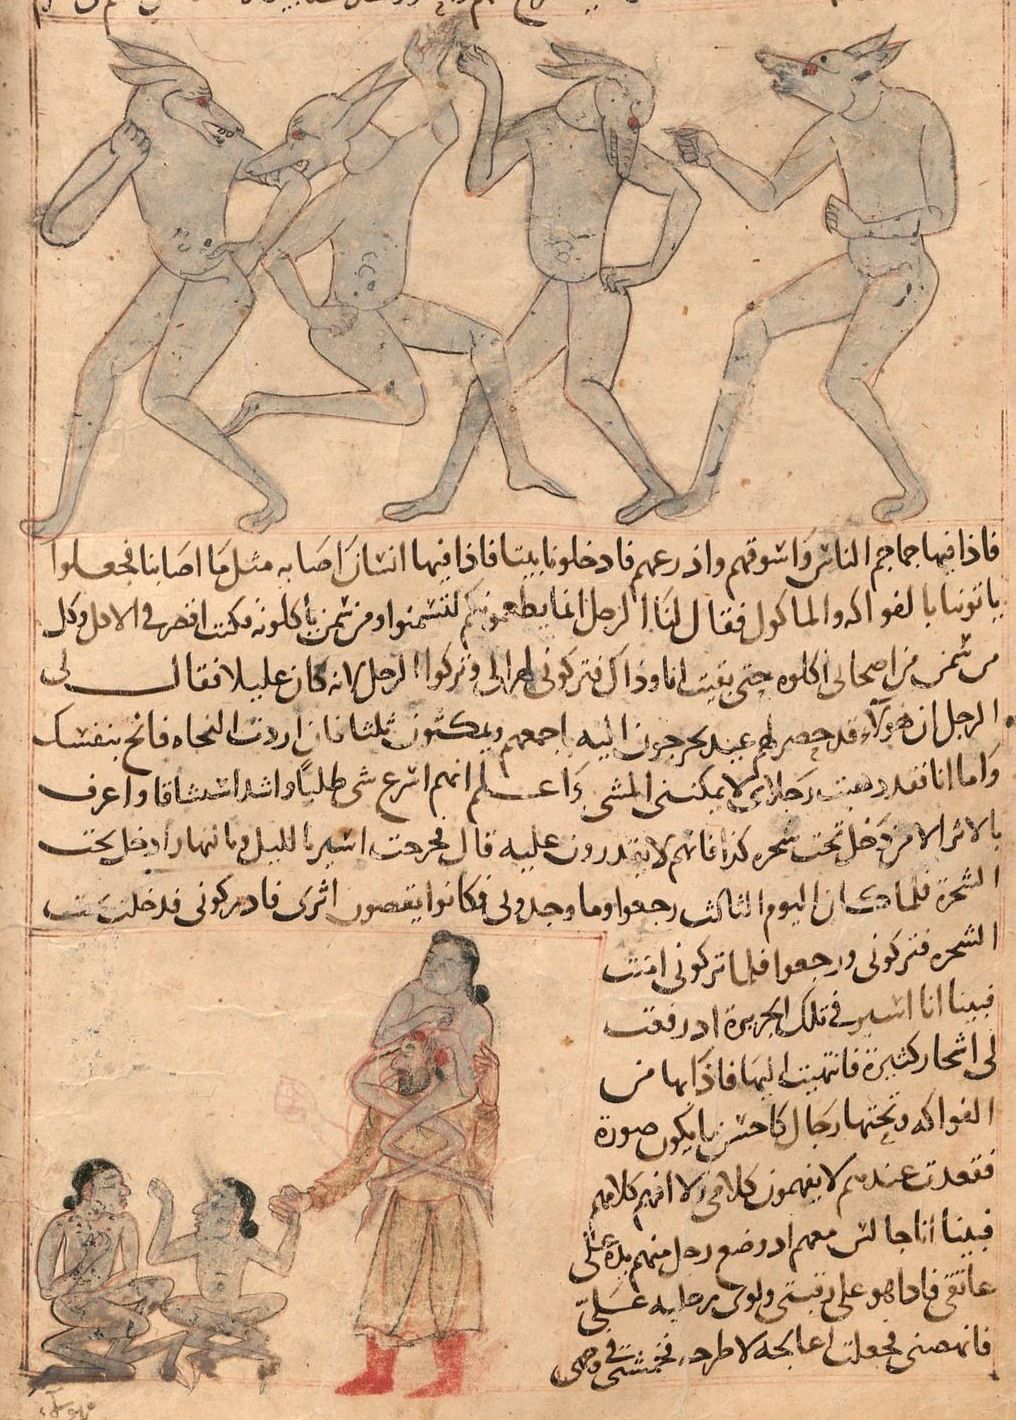 فاذا فيها جماجم الناس واسوقهم واذرعهم فادخلونا بيتا فاذا فيها انسان اصابه مثل ما اصابنا فجعلوا
ياتوننا بالفواكه والماكول فقال لنا الرجل انما يطعمونكم لتسمنوا ومن سمن ياكلونه فكنت اقصر في الاكل وكل
من سمن من اصحابى اكلوه حتى بقيت انا وذاك فتركونى لهزالى وتركوا الرجل لانه كان عليلا فقال لى
الرجل ان هولاء قد حضر لهم عيد يخرجون اليه باجمعهم ويمكثون ثلثا فان اردت النجاه فانج بنفسك
واما انا فقد ذهبت رجلاى لا يمكننى المشى واعلم انهم اسرع شى طلبا واشد استنشاقا واعرف
بالاثر الا من دخل تحت شجره كذا فانهم لا يقدرون عليه قال فخرجت اسير بالليل وبالنهار ادخل تحت
الشجره فلما كان اليوم الثالث رجعوا وما وجدونى فكانوا يقصون اثرى فادركونى قد دخلت تحت
الشجره فتركونى ورجعوا فلما تركونى امنت
فبينا انا اسير في تلك الجزيرة اذ رفعت
لى اشجار كثيرة فانتهيت اليها فاذا بها من
الفواكه وتحتها رجال كاحسن ما يكون صورة
فقعدت عندهم لا يفهمون كلامى ولا افهم كلامهم
فبينا انا جالس معهم اذ وضع رجل منهم يده على
عاتقى فاذا هو على رقبتى ولوى رجليه على
فانهضنى فجعلت اعالجه لاطرحه فخمشنى في وجهى